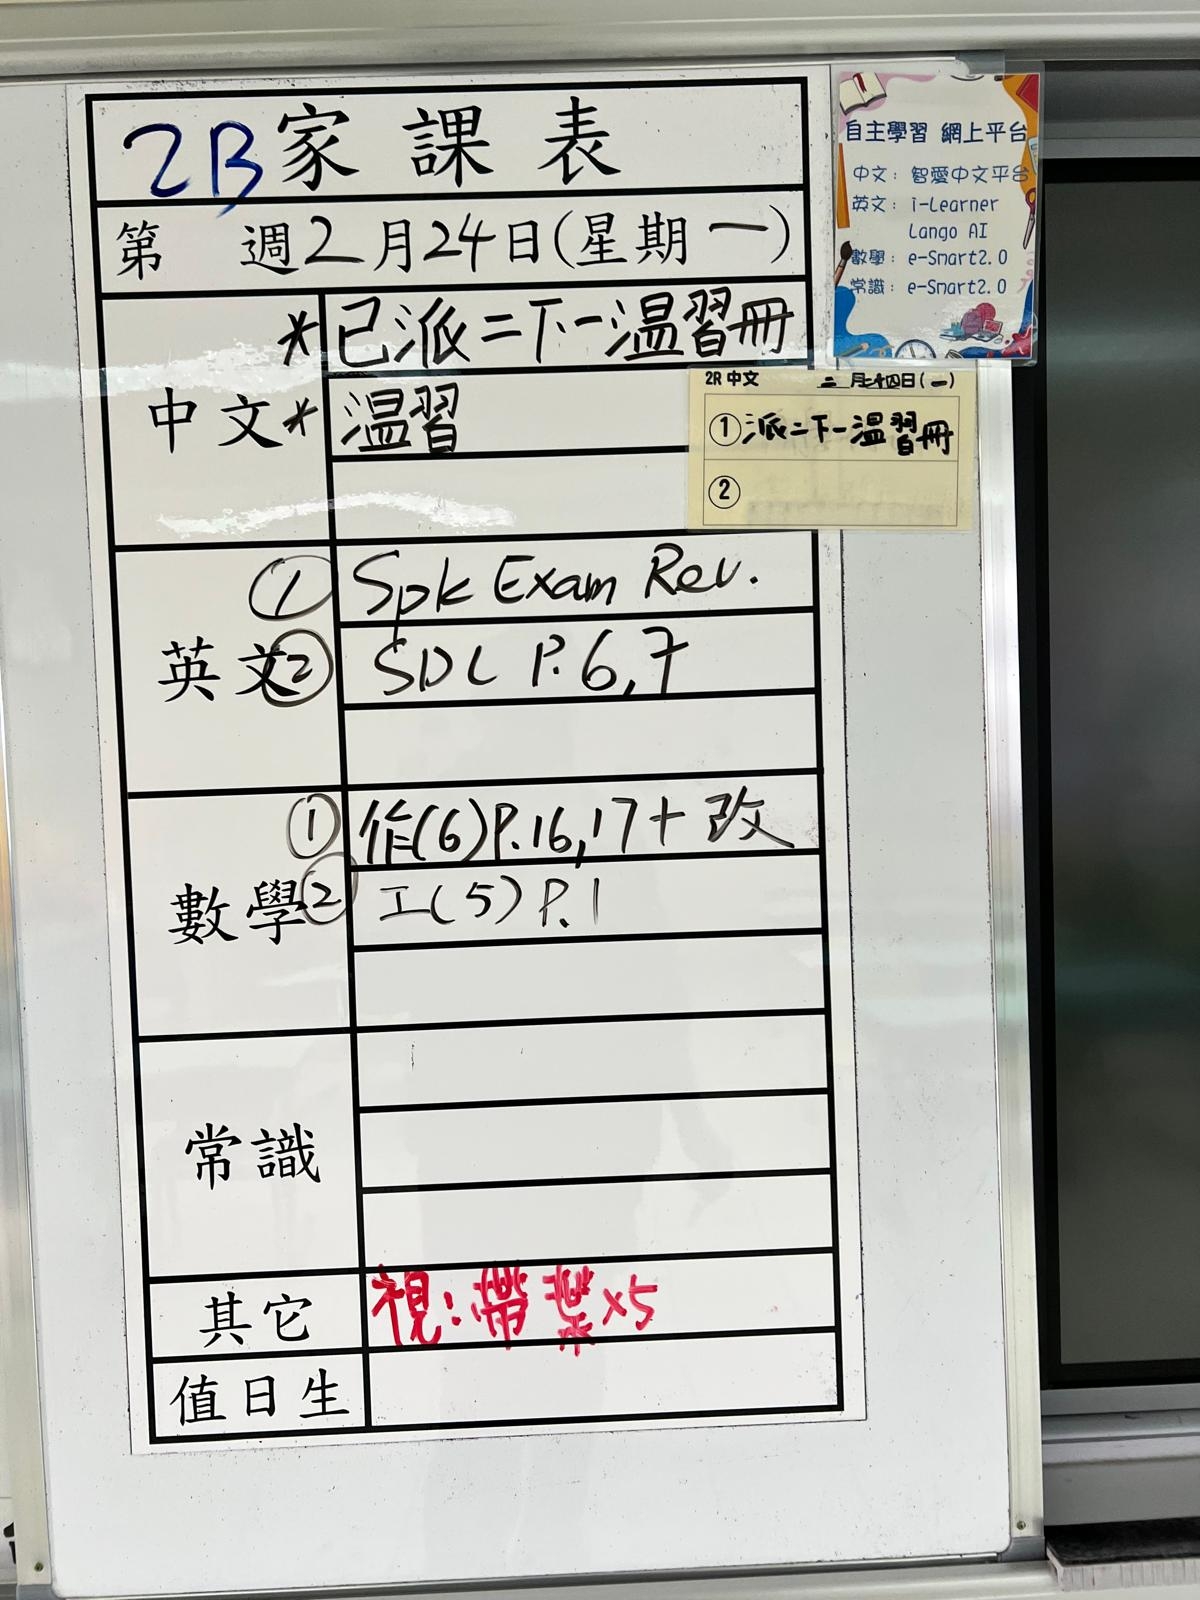 2B家課表
第 週2月24日(星期一)
中文
*已派二下一温習冊
*温習
英文
① Spk Exam Rev.
② SDL P.6,7
數學
① 作(6)P.16,17+改
② 工(5)P.1
常識
其它
視:帶葉x5
值日生
自主學習 網上平台
中文: 智愛中文平台
英文: i-Learner
Lango AI
數學: e-Smart2.0
常識: e-Smart2.0
2R 中文 二月廿四日(一)
①派二下一温習冊
②